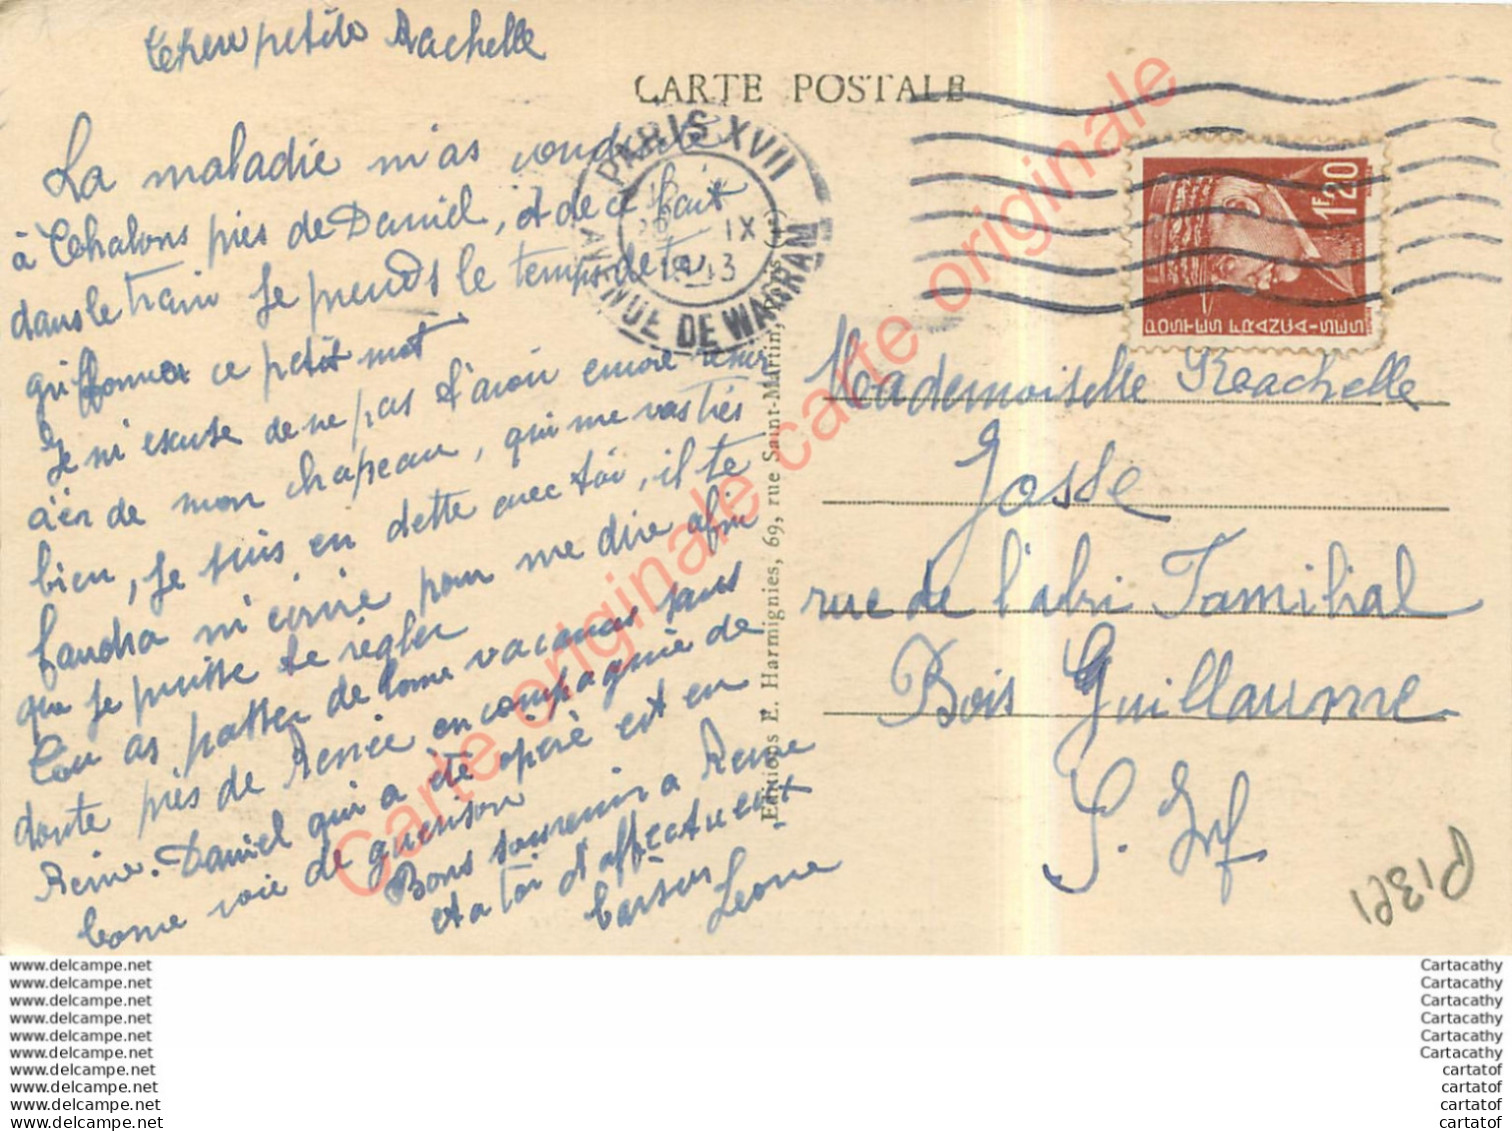 Chere petite Rachelle
La maladie m'as conduite
à Chalons près de Daniel, et de ce fait
dans le train je prends le temps de te
griffonner ce petit mot
Je m'excuse de ne pas t'avoir encore remer
cier de mon chapeau, qui me vas tres
bien, je suis en dette avec toi, il te
faudra m'ecrire pour me dire afin
que je puisse te régler
Tu as passer de bonne vacances sans
doute près de Renée en compagnie de
Reine. Daniel qui a été opéré est en
bonne voie de guerison
Bons souvenirs a Reine
et a toi d'affectueux
baisers
Leone
CARTE POSTALE
PARIS XVII
IX
1943
AVENUE DE WAGRAM
1F20
POSTES FRANÇAISES
Editions E. Harmignies, 69, rue Saint-Martin, Paris (4e)
Mademoiselle Reachelle
Josse
rue de l'abri Familial
Bois Guillaume
S. Inf
P13P1
Carte originale carte originale carte originale
www.delcampe.net
www.delcampe.net
www.delcampe.net
www.delcampe.net
www.delcampe.net
www.delcampe.net
www.delcampe.net
www.delcampe.net
www.delcampe.net
www.delcampe.net
Cartacathy
Cartacathy
Cartacathy
Cartacathy
Cartacathy
Cartacathy
cartatof
cartatof
cartatof
cartatof